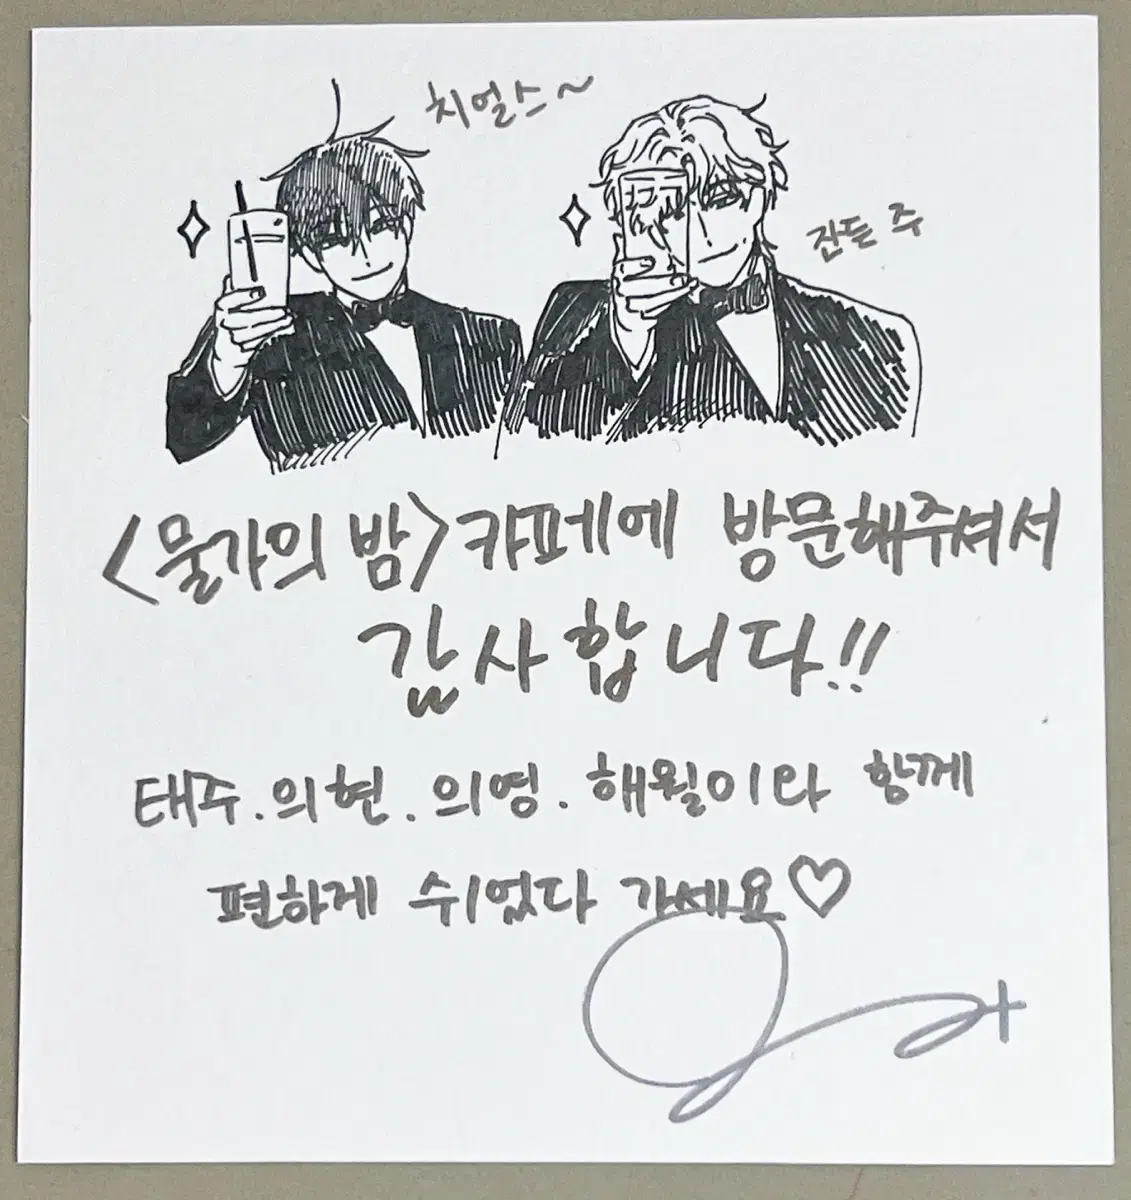 치얼스~
잔든 주
<물가의 밤> 카페에 방문해주셔서
감사합니다!!
태주.의현.의영.해월이와 함께
편하게 쉬었다 가세요♡